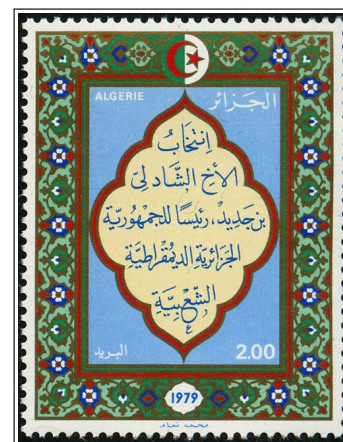 ALGERIE الجزائر
إنتخابُ
الأخ الشّاذليّ
بن جديد، رئيسًا للجمهوريّة
الجزائريّة الديمقراطيّة
الشّعبيّة
البريد 2.00
1979
محمد تمام